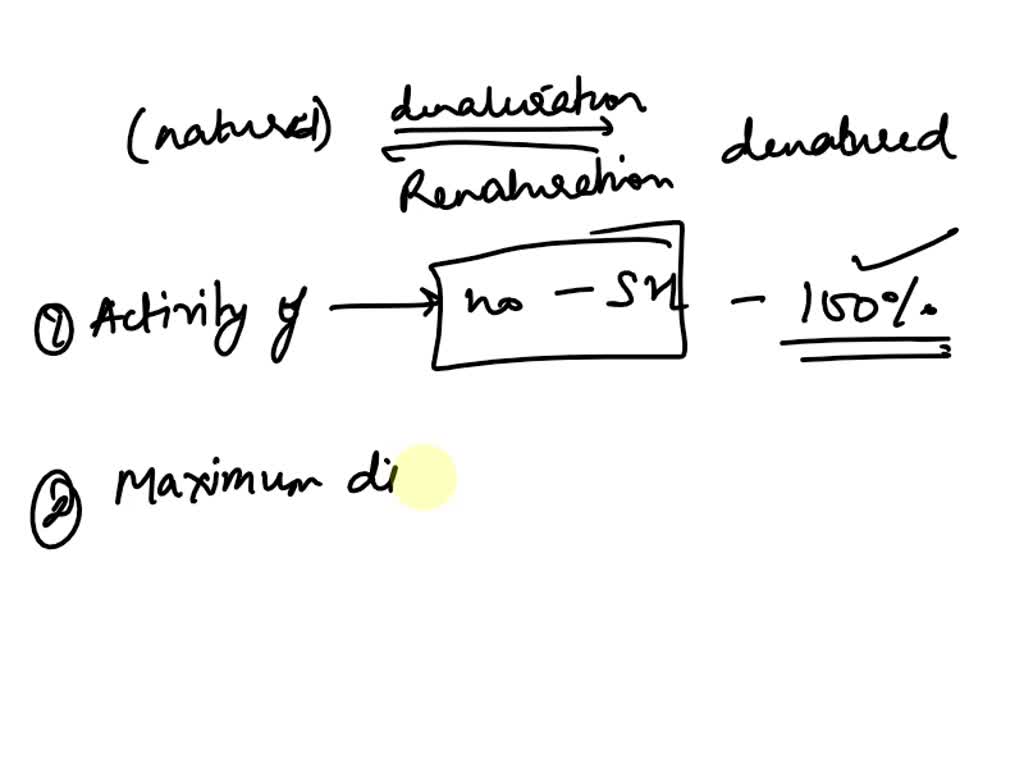 (natured) denaturation denatured
Renaturation
① Activity of → no - SH - 100%
② Maximum di